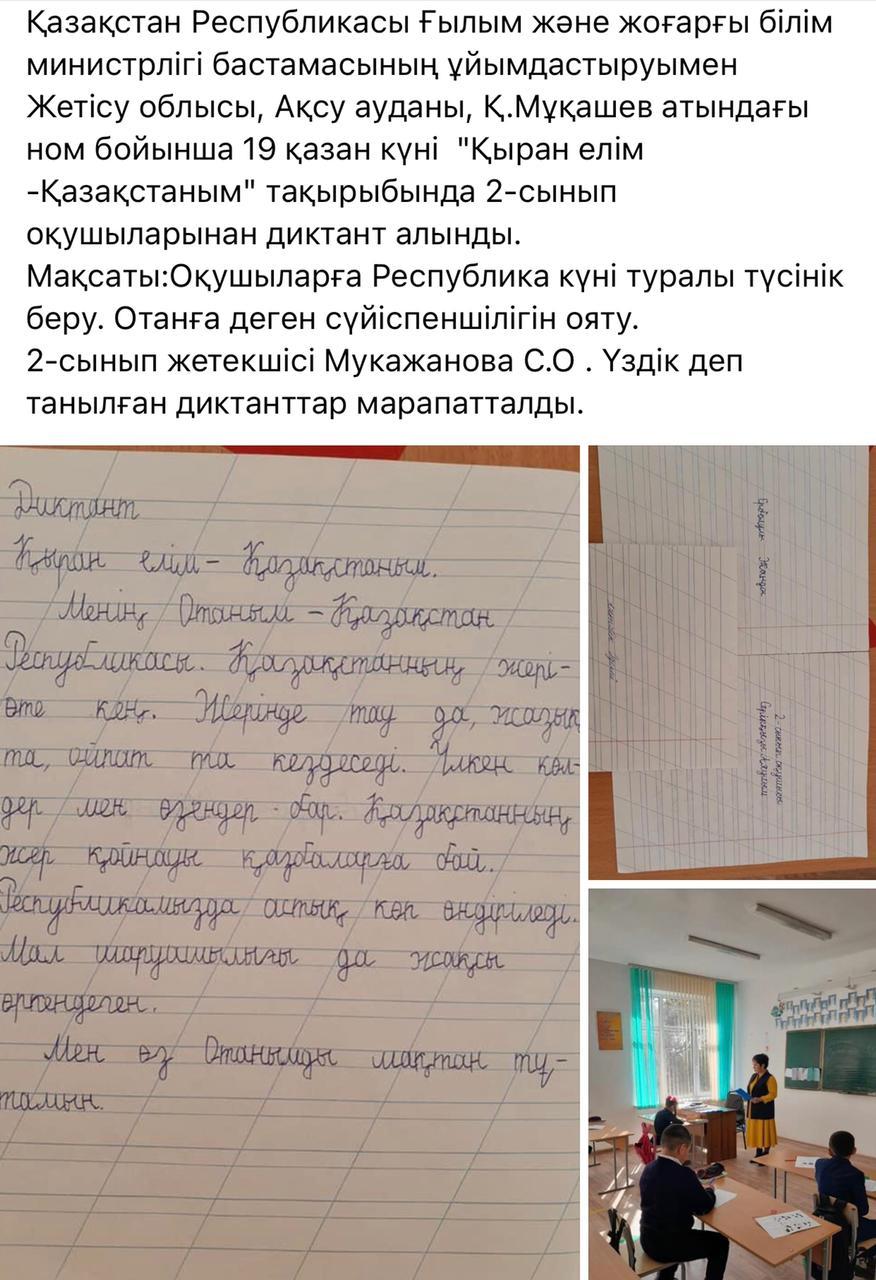 Қазақстан Республикасы Ғылым және жоғарғы білім
министрлігі бастамасының ұйымдастыруымен
Жетісу облысы, Ақсу ауданы, Қ.Мұқашев атындағы
ном бойынша 19 қазан күні  "Қыран елім
-Қазақстаным" тақырыбында 2-сынып
оқушыларынан диктант алынды.
Мақсаты:Оқушыларға Республика күні туралы түсінік
беру. Отанға деген сүйіспеншілігін ояту.
2-сынып жетекшісі Мукажанова С.О . Үздік деп
танылған диктанттар марапатталды.
Диктант
Қыран елім – Қазақстаным.
Менің Отаным – Қазақстан
Республикасы. Қазақстанның жері-
өте кең. Жерінде тау да, жазық
та, ойпат та кездеседі. Үлкен көл-
дер мен өзендер бар. Қазақстанның
жер қойнауы қазбаларға бай.
Республикамызда астық көп өндіріледі.
Мал шаруашылығы да жақсы
өркендеген.
Мен өз Отанымды мақтан тұ-
тамын.
2-сынып оқушысы
Серікқызы